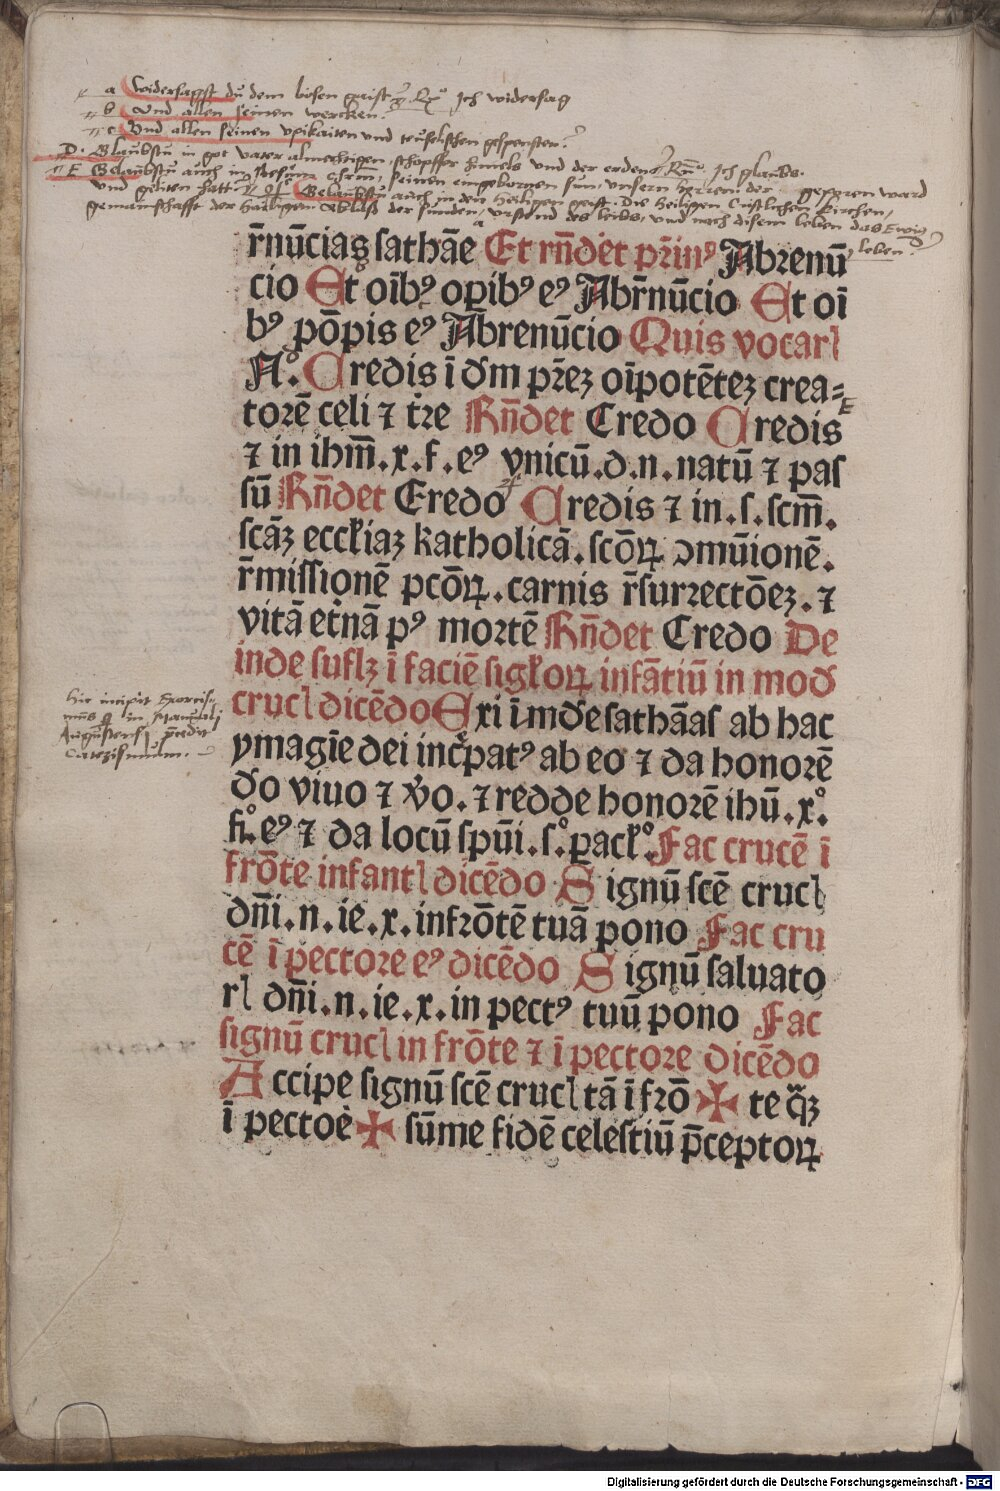 a Widersagst du dem bösen gaist? Rx° Ich widersag
b Vnd allen seinen wercken.
c Vnd allen seinen vpikaiten und teuselschen gespensten?
D. Glaubstu in got vater almechtigen schopffer himels und der erden? Rn° Ich glaubs.
E Gelaubstu auch in Jhesum chrm, seinen eingebornen sun, unsern herren der geporen ward
und geliten hatt Gelaubstu auch in den heiligen geist. Die heiligen Cristlichen Kirchen,
gemainschafft der hailigen Ablaß der sunden, vrstend des leibs, und nach disem leben das Ewig
leben?
r̄nūciaꝫ sathāe Et rn̄det pr̄inꝰ Abrenū
cio Et oībꝰ oꝑibꝰ eꝰ Abr̄nūcio Et oī
bꝰ pōpis eꝰ Abrenūcio Quis vocarꝭ
N°. Credis ī dm pr̄eꝫ oīpotēteꝫ crea⸗
torē celi ⁊ tr̄e Rn̄det Credo Credis
⁊ in ihm̄.x.f.eꝰ vnicū.d.n.natū ⁊ pas
sū Rn̄det Credo Credis ⁊ in.s.scm̄.
scāꝫ eccl̄iaꝫ katholicā.scōꝝ ↄmūionē.
r̄missionē pcōꝝ.carnis r̄surrectōeꝫ.⁊
vitā et̄nā pꝰ mortē Rn̄det Credo De
inde suflꝫ ī faciē sigl̄oꝝ infātiū in mod̄
crucꝭ dicēdo Exi ī.md̄e sathāas ab hac
ymagīe dei inc̄patꝰ ab eo ⁊ da honorē
d̄o viuo ⁊ v̄o.⁊ redde honorē ihū.x°.
fi°.eꝰ ⁊ da locū spūi.s°.ꝑacl̄°. Fac crucē ī
frōte infantꝭ dicēdo Signū scē crucꝭ
dn̄i.n.ie.x.in frōtē tuā pono Fac cru
cē ī pectore eꝰ dicēdo Signū saluato
rꝭ dn̄i.n.ie.x.in pectꝰ tuū pono Fac
signū crucꝭ in frōte ⁊ ī pectore dicēdo
Accipe signū scē crucꝭ tā ī frō ✠ te qꝫ
ī pectoē ✠ sūme fidē celestiū p̄ceptoꝝ
Hic incipit Exorcis-
mus in Manuali
Augustensi, p̄cedit
Catezismum.
Digitalisierung gefördert durch die Deutsche Forschungsgemeinschaft - DFG